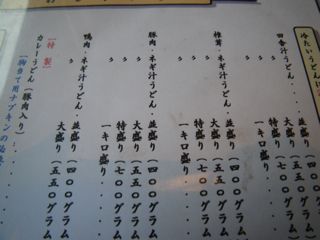 冷たいうどん
田舎汁うどん・並盛り(四〇〇グラム
〃 大盛り(五五〇グラム
〃 特盛り(七〇〇グラム
〃 一キロ盛り・・・
椎茸・ネギ汁うどん・並盛り(四〇〇グラム
〃 大盛り(五五〇グラム
〃 特盛り(七〇〇グラム
〃 一キロ盛り・・・
豚肉・ネギ汁うどん・並盛り(四〇〇グラム
〃 大盛り(五五〇グラム
〃 特盛り(七〇〇グラム
〃 一キロ盛り・・・
鴨肉・ネギ汁うどん・並盛り(四〇〇グラム
〃 大盛り(五五〇グラム
〃 特盛り(七〇〇グラム
〃 一キロ盛り・・・
【特製】
カレーうどん(豚肉入り)・・・
(胸当て用ナプキンの